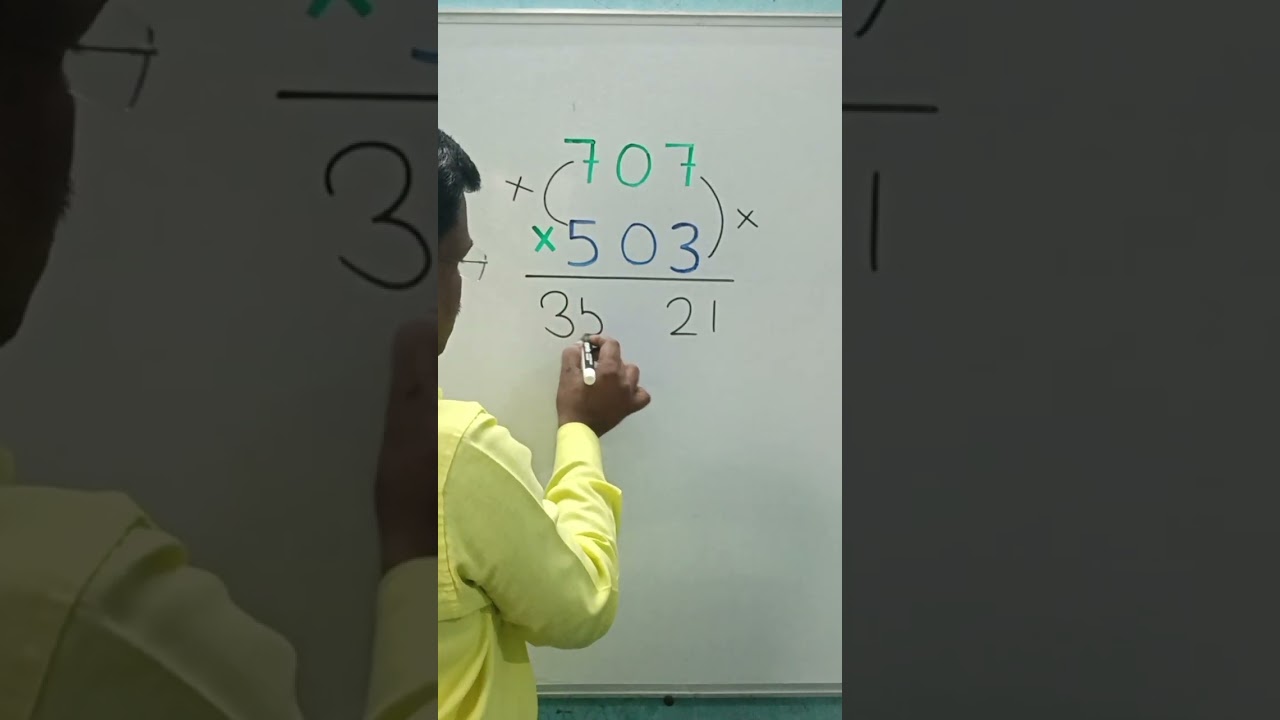 707
× 503
35 21
× ×